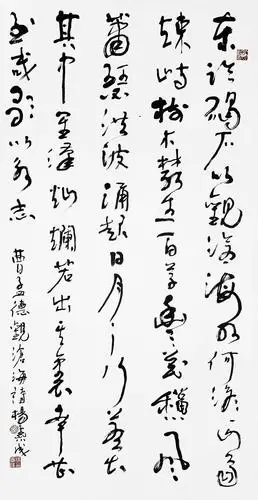 東臨碣石以觀滄海水何澹澹山島
竦峙樹木叢生百草豐茂秋風
蕭瑟洪波涌起日月之行若出
其中星漢燦爛若出其裏幸甚
至哉歌以詠志
曹孟德觀滄海詩楊成